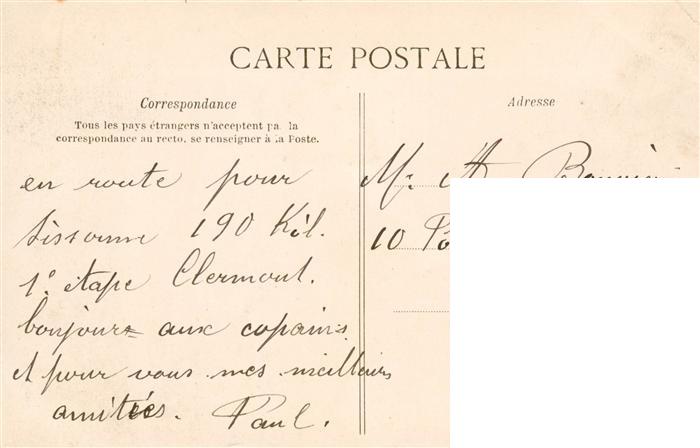 CARTE POSTALE
Correspondance
Tous les pays étrangers n'acceptent pa. la
correspondance au recto, se renseigner à la Poste.
en route pour
Sissonne 190 Kil.
1º étape Clermont.
bonjours aux copains
et pour vous mes meilleurs
amitiés. Paul.
Adresse
Mr A.
10